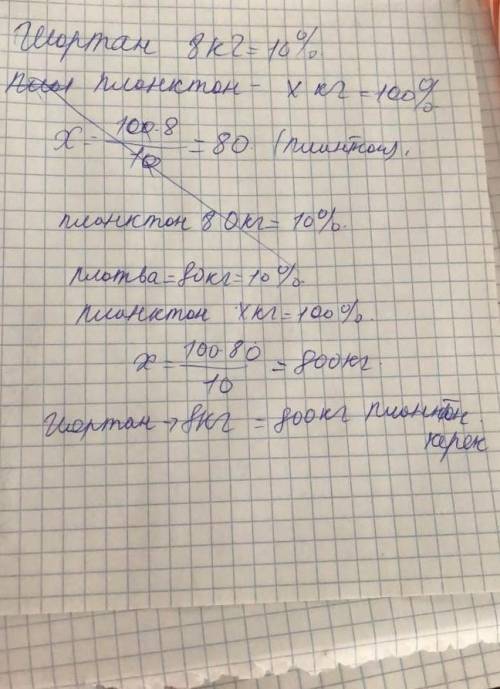 Шортан 8кг = 10%
планктон - х кг = 100%
х = 100·8 / 10 = 80 (планктон).
планктон 80кг = 10%.
плотва = 80кг = 10%.
планктон х кг = 100%.
х = 100·80 / 10 = 800кг.
Шортан → 8кг = 800кг планктон
керек